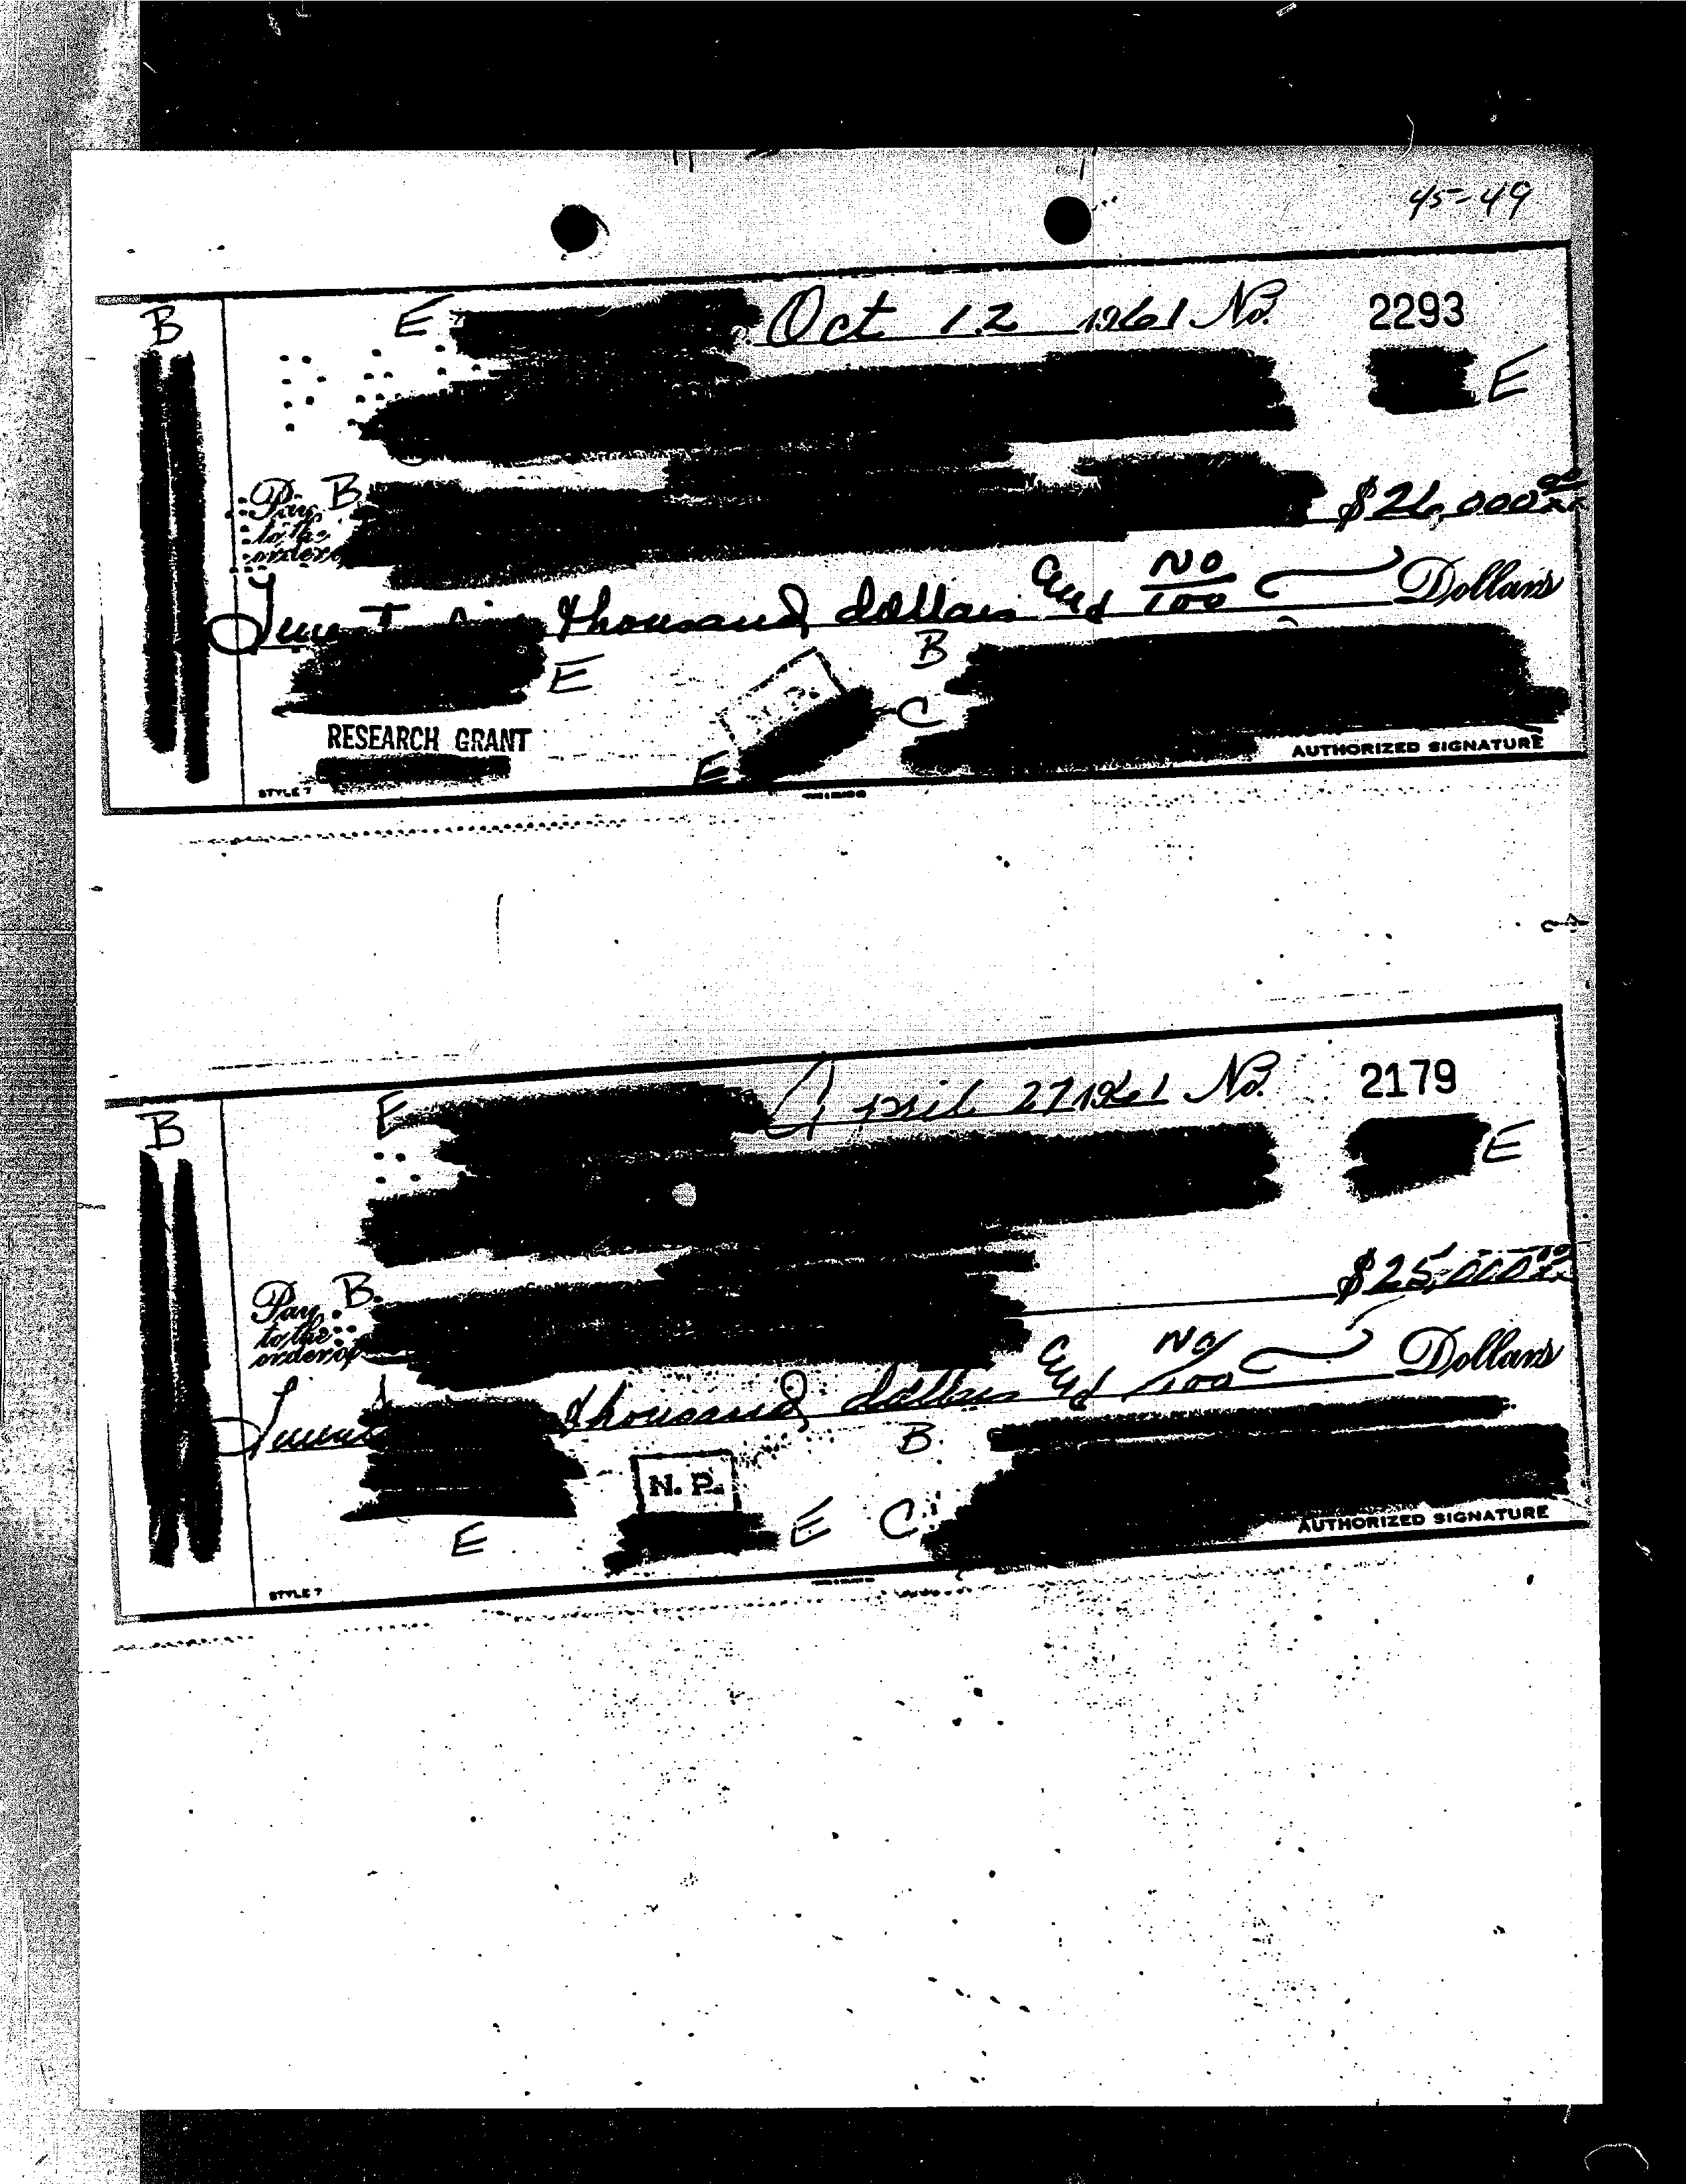 45-49
B E Oct 12 1961 No. 2293
E
Pay B
to the
order of $26,000 00
thousand dollars and no/100 Dollars
B
E
C
RESEARCH GRANT
E AUTHORIZED SIGNATURE
STYLE 7
B E April 27 1961 No. 2179
E
Pay B.
to the
order of $25,000
thousand dollars and no/100 Dollars
B.
N. P.
E E C
AUTHORIZED SIGNATURE
STYLE 7